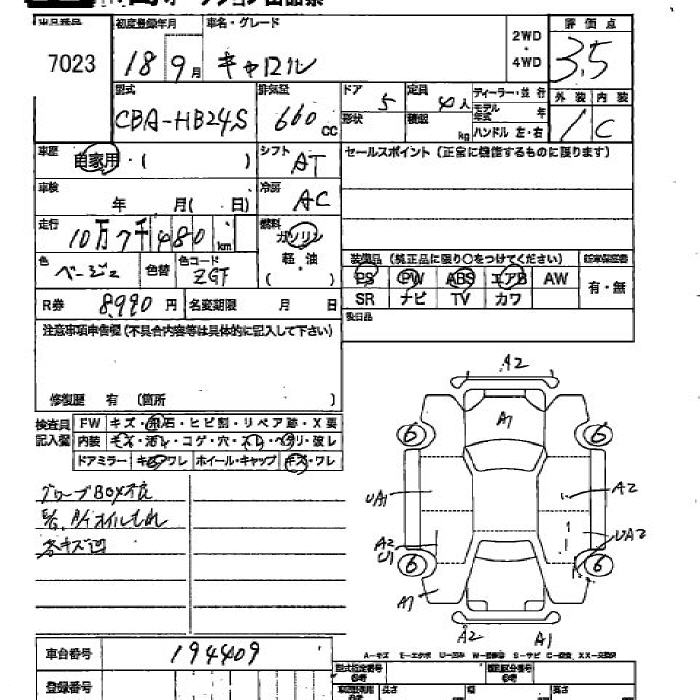 出品番号 初度登録年月 車名・グレード 2WD・4WD 評価点
7023 18 9月 キャロル 3.5
型式 排気量 ドア 定員 ディーラー・並行 外装 内装
CBA-HB24S 660 CC 5 4人 モデル年式 年 1 C
形状 積載 kg ハンドル 左・右
車歴 自家用・( ) シフト AT セールスポイント (正常に機能するものに限ります)
車検 年 月( 日) 冷房 AC
走行 10万7千480 km 燃料 ガソリン
色 ベージュ 色替 色コード ZGT 軽・油 ( )
装備品 (純正品に限り○をつけてください)
PS PW ABS エアB AW 有・無
R券 8,990円 名変期限 月 日 SR ナビ TV カワ
注意事項申告欄 (不具合内容等は具体的に記入して下さい) 後日品
修復歴 有 (箇所 )
検査員記入欄 FW キズ・飛石・ヒビ割・リペア跡・X要
内装 キズ・汚レ・コゲ・穴・スレ・ヘタリ・破レ
ドアミラー キズ・ワレ ホイール・キャップ キズ・ワレ
グローブBOX不良
オイルもれ
各キズ凹
A2
A1
6 6
UA1 A2
A2 U1 UA2
6 6
A1
A2 A1
車台番号 194409
登録番号
型式指定番号 類別区分番号
長さ 幅 高さ